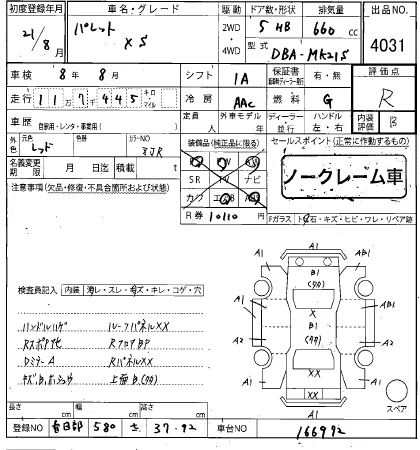 初度登録年月 車名・グレード 駆動 ドア数・形状 排気量 出品NO
21/8月 パレット XS 2WD 4WD 5 HB 660 cc
型式 DBA-MK21S 4031
車検 8年 8月 シフト IA 保証書 有・無 評価点
走行 117千445 キロ マイル 冷房 AAC 燃料 G R
車歴 自家用・レンタ・事業用 定員 人 外車モデル 年 ディーラー 並行 ハンドル 左・右 内装評価 B
外色 元色 レッド 色替 カラーNO ZJR 装備品(純正品に限る) セールスポイント(正常に作動するもの)
名義変更期限 月 日迄 積載 t SR TV ナビ
ノークレーム車
注意事項(欠品・修復・不具合箇所および状態)
R券 10110 円 Fガラス ト石・キズ・ヒビ・ワレ・リペア跡
A1
A1 B1 AB1
(タカ)
X
A1 B1 AB1
(タカ)
XX
A1 A1
XX
A1
スペア
検査員記入 内装 キズ・キレ・コゲ・穴
ハンドルハゲ ルーフパネルXX
RフロアBP
DミラーA RパネルXX
上廻B(タカ)
長さ cm 幅 cm 高さ cm
登録NO 春日部 580 き 37-92 車台NO 166992